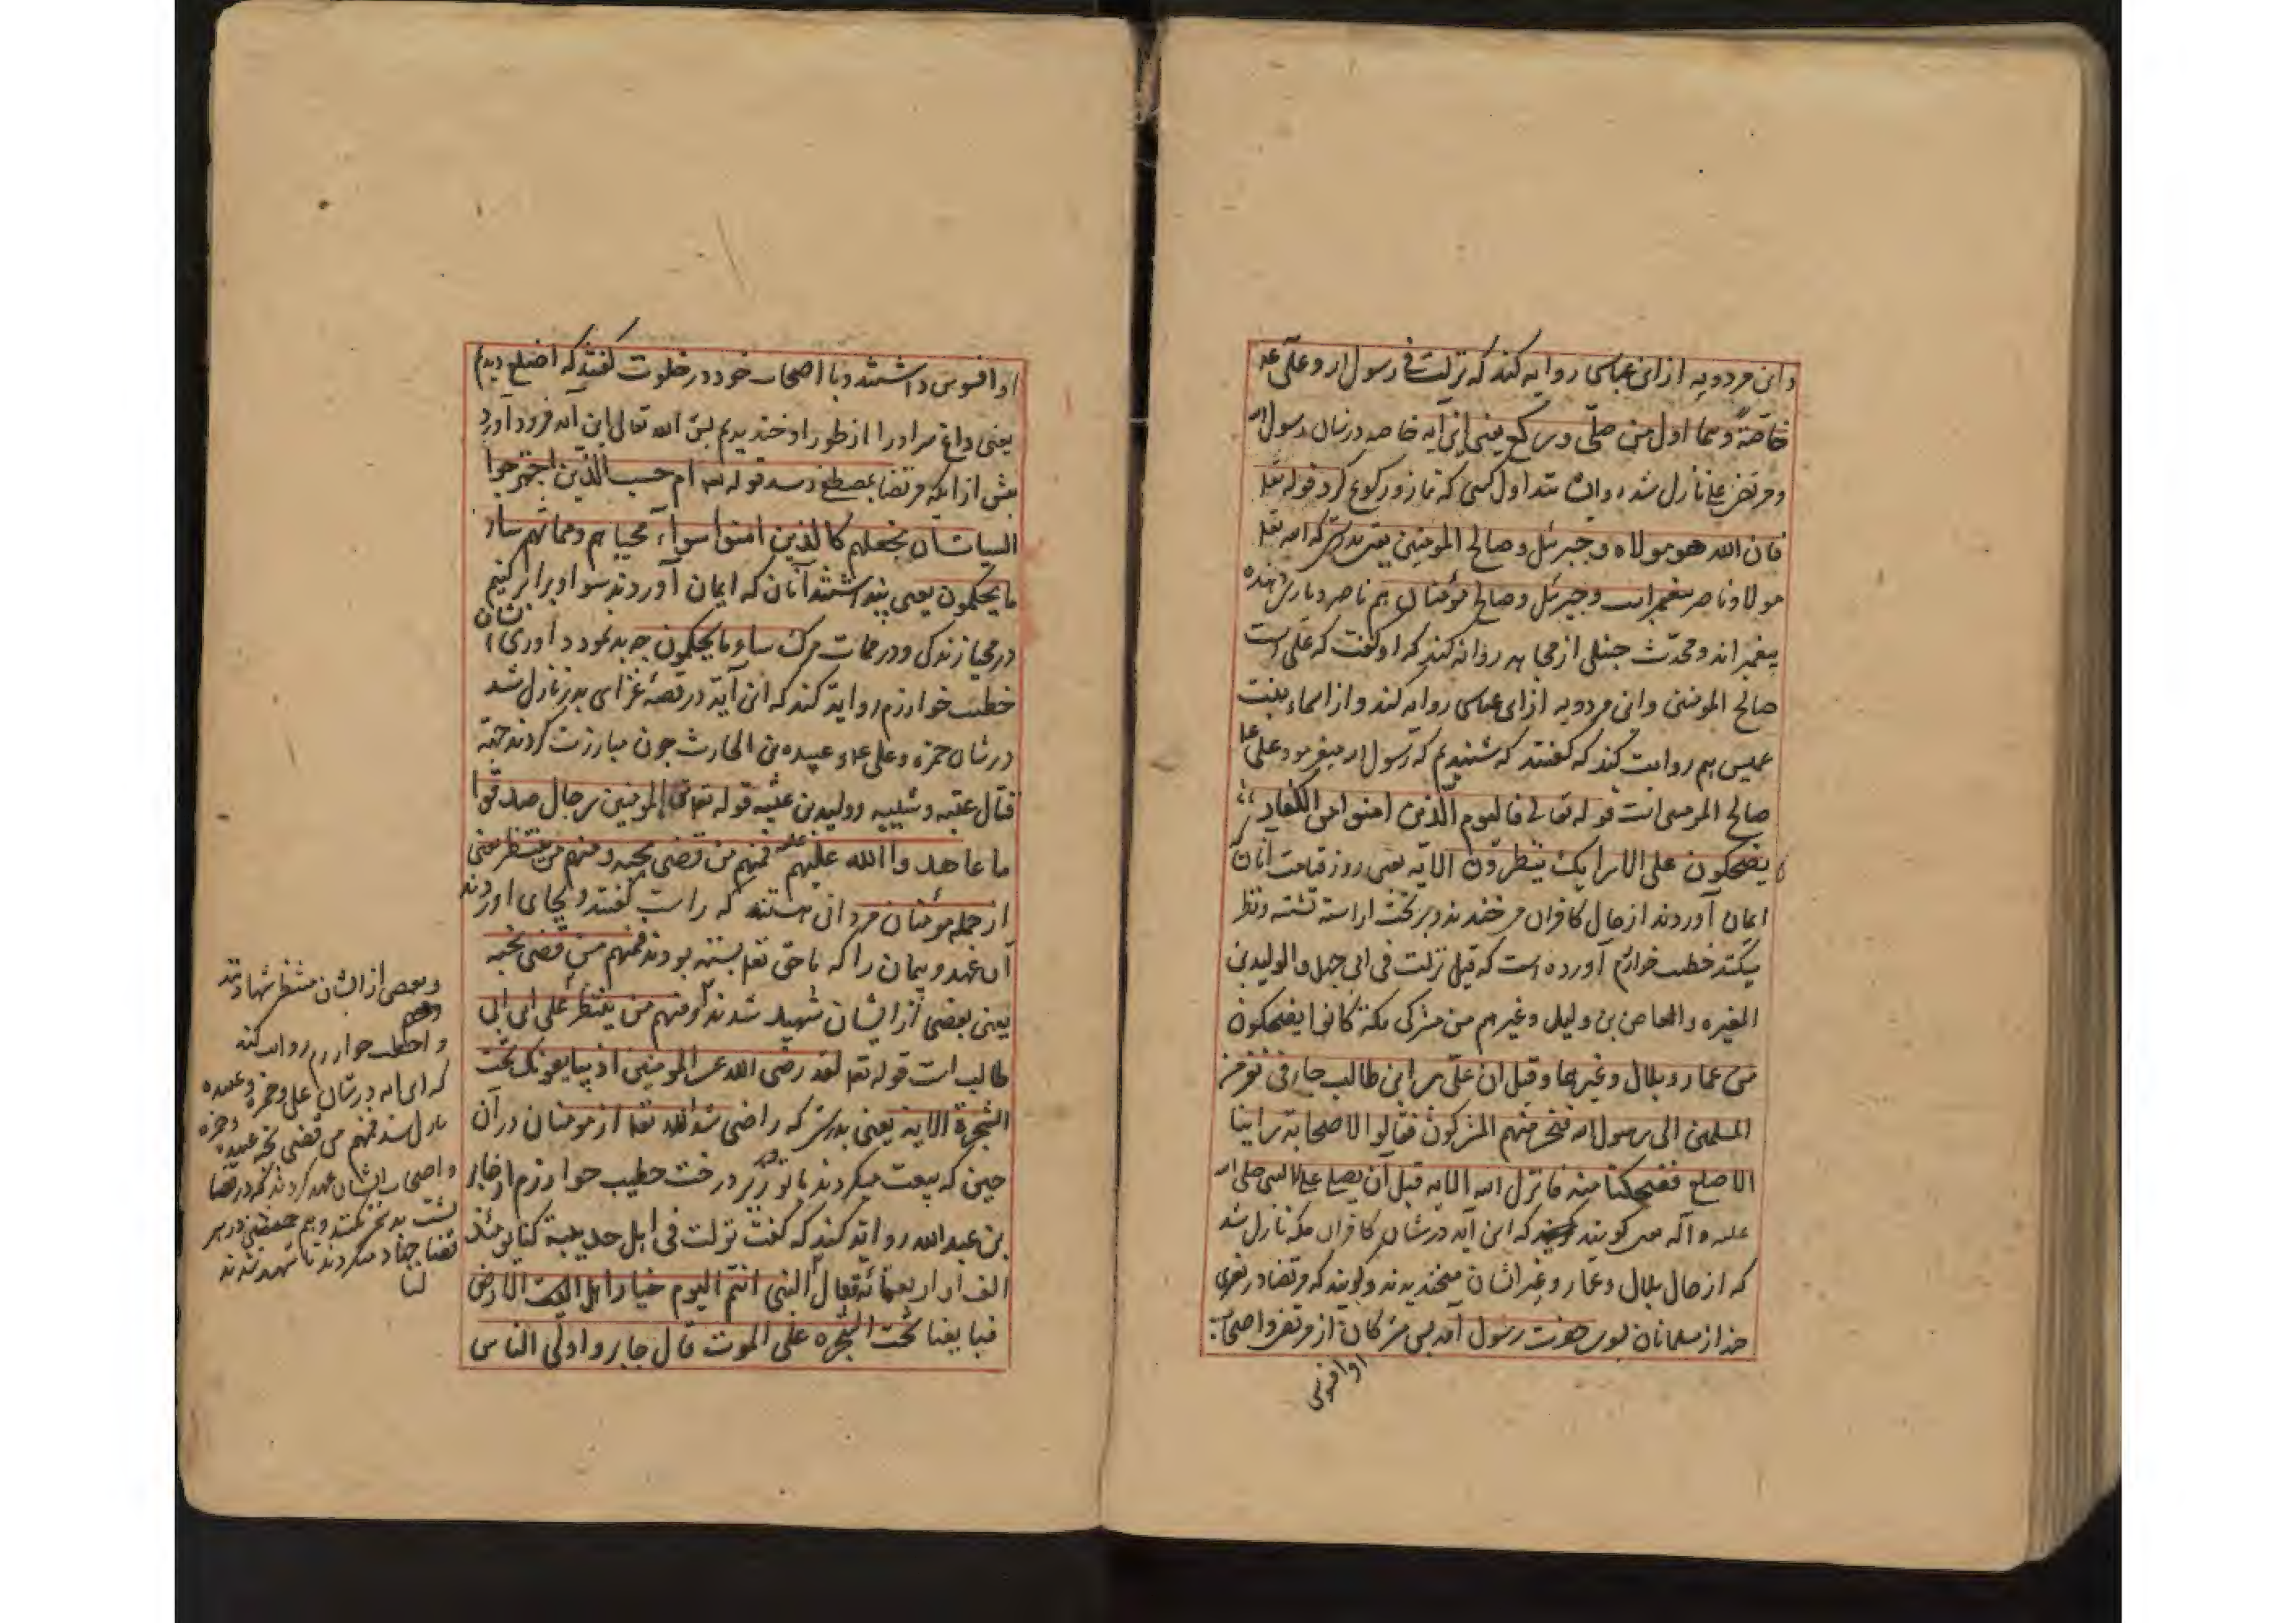 وابن مردویه از ابن عباس روایه کند که نزلت فی رسول الله و علی ع
خاصّةً وهما اول من صلّی ورکع یعنی این آیه خاصه درشان رسول الله
ومرتضی علی نازل شده و ایشانند اول کسی که نماز و رکوع کرد قوله تعلی
فان الله هو مولاه و جبرئیل و صالح المومنین یعنی بدرستی که الله تعلی
مولا و ناصر پیغمبر است و جبرئیل و صالح مؤمنان هم ناصر و یاری دهنده
پیغمبر اند و محدّث حنبلی از مجاهد روایه کند که او گفت که علی است
صالح المومنین وابن مردویه از ابن عباس روایه کند و از اسماء بنت
عمیس هم روایت کند که گفتند که شنیدیم که رسول الله میفرمود علی
صالح المومنین است قوله تعالی فالیوم الّذین امنوا من الکفار
یضحکون علی الارایک ینظرون الآیه یعنی روز قیامت آنان که
ایمان آوردند از حال کافران می خندند و بر تخت آراسته نشسته و نظر
میکنند خطیب خوارزم آورده است که قیل نزلت فی ابی جهل والولید بن
المغیره والعاص بن ولیل وغیرهم من مشرکی مکة کانوا یضحکون
من عمار و بلال وغیرها وقیل ان علّی بن ابی طالب جاء فی نفر من
المسلمین الی رسول الله فسخر منهم المشرکون فقالوا لاصحابه راینا
الاصلع فضحکنا منه فانزل الله الایه قبل آن یصل علی الی النبی صلی الله
علیه وآله می گویند که این آیه در شان کافران مکه نازل شد
که از حال بلال وعمار وغیر ایشان میخندیدند و گویند که مرتضی در نفری
چند از مسلمانان بسوی حضرت رسول آمد پس مشرکان از مرتضی و اصحاب
او افسوس داشتند و با اصحاب خود در خلوت گفتند که اصلع دیدیم
یعنی داغ سر او را از طور او خندیدیم پس الله تعالی این آیه فرود آورد
پیش از آنکه مرتضی بمصطفی رسد قوله تعلی ام حسب الّذین اجترحوا
السیات ان نجعلهم کالذین امنوا سواء محیاهم ومماتهم ساء
ما یحکمون یعنی پنداشتند آنان که ایمان آوردند سوا و برابر کنیم
درمحیا زندگی و در ممات مرگ ساء ما یحکمون چه بد بود داوری ایشان
خطیب خوارزم روایة کند که این آیة در قصهٔ غزای بدر نازل شد
در شان حمزه و علی ع و عبیده بن الحارث چون مبارزت کردند جهة
قتال عتبه و شیبه و ولید بن عتبه قوله تعالی من المومنین رجال صدقوا
ما عاهدوا الله علیه فمنهم من قضی نحبه ومنهم من ینتظر یعنی
از جمله مؤمنان مردانی هستند که راست گفتند و بجای آوردند
آن عهد و پیمان را که با حق تعلی بسته بودند فمنهم من قضی نحبه
یعنی بعضی از ایشان شهید شدند ومنهم من ینتظر علی ابن ابی
طالب است قوله تعلی لقد رضی الله عن المومنین اذ یبایعونک تحت
الشجرة الایه یعنی بدرستی که راضی شد الله تعلی از مومنان در آن
حین که بیعت میکردند با تو در زیر درخت خطیب خوارزم از جابر
بن عبد الله روایة کند که گفت نزلت فی اهل حدیبیة کنا یومئذ
الف او اربعمائة فقال النبی انتم الیوم خیار اهل الارض
فبایعنا تحت الشجره علی الموت قال جابر و اولی الناس
وبعضی از ایشان منتظر شهادتند
و اخطب خوارزم روایت کند
که این ایه درشان علی و حمزه و عبیده
نازل شد فمنهم من قضی نحبه عبیده وحمزه
و اصحاب ایشان عهد کردند که در قضا
پشت بدشمن نکنند و هم
جهاد میکردند تا شهید شدند